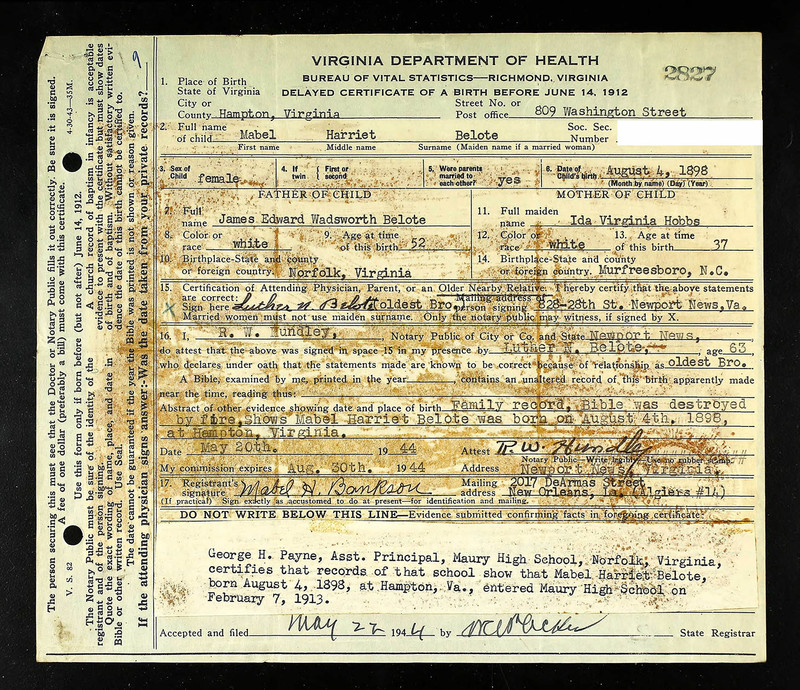 VIRGINIA DEPARTMENT OF HEALTH
BUREAU OF VITAL STATISTICS—RICHMOND, VIRGINIA
DELAYED CERTIFICATE OF A BIRTH BEFORE JUNE 14, 1912
2827
1. Place of Birth
State of Virginia
City or Street No. or
County Hampton, Virginia Post office 809 Washington Street
2. Full name of child Mabel Harriet Belote Soc. Sec. Number
First name Middle name Surname (Maiden name if a married woman)
3. Sex of Child female 4. If twin { First or second 5. Were parents married to each other? yes 6. Date of Child's birth August 4, 1898
(Month by name) (Day) (Year)
FATHER OF CHILD MOTHER OF CHILD
7. Full name James Edward Wadsworth Belote 11. Full maiden name Ida Virginia Hobbs
8. Color or race white 9. Age at time of this birth 52 12. Color or race white 13. Age at time of this birth 37
10. Birthplace-State and county or foreign country, Norfolk, Virginia 14. Birthplace-State and county or foreign country, Murfreesboro, N.C.
15. Certification of Attending Physician, Parent, or an Older Nearby Relative. I hereby certify that the above statements
are correct: Mailing address of
X Sign here Luther N. Belote (oldest Bro.) person signing 828-28th St. Newport News, Va.
Married women must not use maiden surname. Only the notary public may witness, if signed by X.
16. I, R. W. Hundley, Notary Public of City or Co. and State Newport News,
do attest that the above was signed in space 15 in my presence by Luther N. Belote, age 63
who declares under oath that the statements made are known to be correct because of relationship as oldest Bro.
A Bible, examined by me, printed in the year contains an unaltered record of this birth apparently made
near the time, reading thus:
Abstract of other evidence showing date and place of birth Family record, Bible was destroyed
by fire, shows Mabel Harriet Belote was born on August 4th, 1898,
at Hampton, Virginia.
Date May 20th. 1944 Attest R. W. Hundley
Notary Public—Write legibly—Use no rubber stamp
My commission expires Aug. 30th. 1944 Address Newport News, Virginia,
17. Registrant's signature Mabel H. Bankson Mailing address 2017 DeArmas Street
New Orleans, La. (Algiers #14)
(If practical) Sign exactly as accustomed to do at present—for identification and mailing.
DO NOT WRITE BELOW THIS LINE—Evidence submitted confirming facts in foregoing certificate:
George H. Payne, Asst. Principal, Maury High School, Norfolk, Virginia,
certifies that records of that school show that Mabel Harriet Belote,
born August 4, 1898, at Hampton, Va., entered Maury High School on
February 7, 1913.
Accepted and filed May 22 1944 by State Registrar
The person securing this must see that the Doctor or Notary Public fills it out correctly. Be sure it is signed.
A fee of one dollar (preferably a bill) must come with this certificate.
V. S. 82 4-30-43—35M.
Use this form only if born before (but not after) June 14, 1912.
The Notary Public must be sure of the identity of the registrant and of the person signing.
Quote the exact wording of name, place, and date in Bible or other written record. Use Seal.
A church record of baptism in infancy is acceptable evidence to present with the certificate but must show dates of birth and of baptism. Without satisfactory written evidence the date of this birth cannot be certified to.
The date cannot be guaranteed if the year the Bible was printed is not shown or reason given.
If the attending physician signs answer:-Was the date taken from your private records?